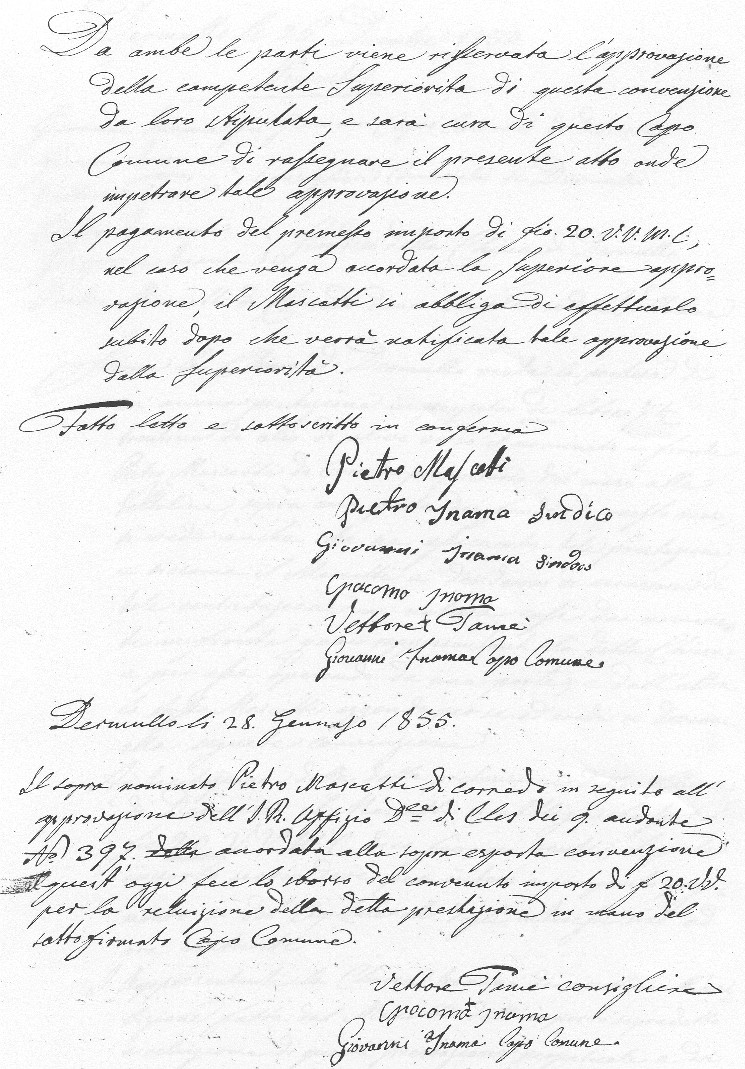 Da ambe le parti viene risservata l'approvazione
della competente Superiorità di questa convenzione
da loro stipulata, e sarà cura di questo Capo
Comune di rassegnare il presente atto onde
impetrare tale approvazione.
Il pagamento del premesso importo di fio. 20. V.V.M.C.,
nel caso che venga accordata la Superiore appro=
vazione, il Mascatti si abbliga di effettuarlo
subito dopo che verrà notificata tale approvazione
dalla Superiorità.
Fatto letto e sottoscritto in conferma
Pietro Mascoti
Pietro Inama Sindico
Giovanni Inama Sindaco
Giacomo Inama
Vettore Tamè
Giovanni Inama Capo Comune
Dermullo li 28. Gennajo 1855.
Il sopra nominato Pietro Mascatti di Corredo in seguito all'
approvazione dell'I. R. Uffizio D.ce di Cles dei 9. andante
No 397. accordata alla sopra esposta convenzione
quest'oggi fece lo sborso del convenuto importo di f 20.
per la reluizione della detta prestazione in mano del
sottofirmato Capo Comune.
Vettore Tamè consigliere
Giacomo Inama
Giovanni Inama Capo Comune.